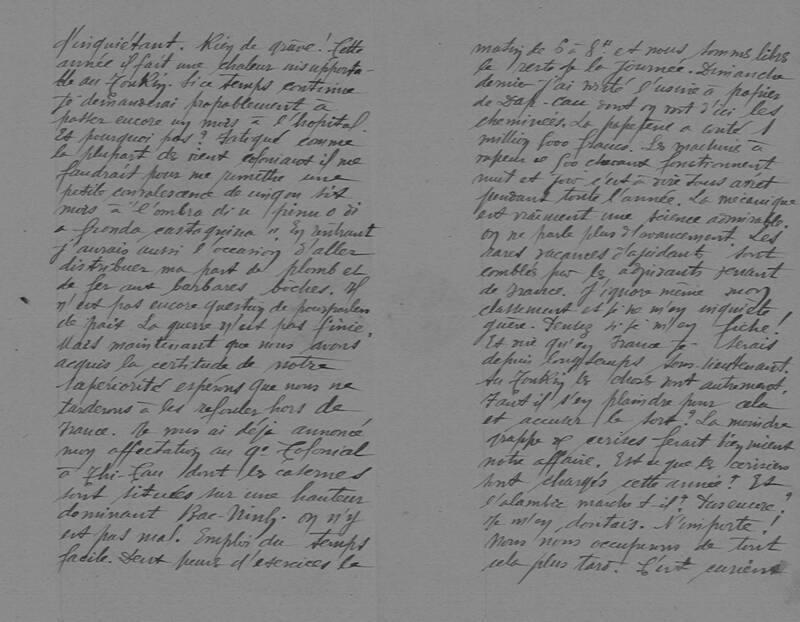 d'inquiétant. Rien de grave! Cette
année il fait une chaleur insupporta-
ble au Tonkin. Si ce temps continue
je demanderai probablement à
passer encore un mois à l'hopital.
Et pourquoi pas? Fatigué comme
la plupart des vieux coloniaux il me
faudrait pour me remettre une
petite convalescence de cinq ou six
mois à l'ombra di u
a fronda castagnina". En rentrant
j'aurais aussi l'occasion d'aller
distribuer ma part de plomb et
de fer aux barbares boches. Il
n'est pas encore question de pourparlers
de paix. La guerre n'est pas finie.
Mais maintenant que nous avons
acquis la certitude de notre
supériorité espérons que nous ne
tarderons à les refouler hors de
France. Je vous ai déjà annoncé
mon affectation au 9e Colonial
à Thi-Cau dont les casernes
sont situées sur une hauteur
dominant Bac-Ninh. on n'y
est pas mal. Emploi du temps
facile. Deux heures d'exercices le
matin de 6 à 8h et nous sommes libres
le reste de la journée. Dimanche
dernier j'ai visité l'usine à papier
de Dap-Cau dont on voit d'ici les
cheminées. La papeterie a coûté 1
million 600 francs. Les machines à
vapeur de 500 chevaux fonctionnent
nuit et jour c'est à dire sans arrêt
pendant toute l'année. La mécanique
est vraiment une science admirable.
On ne parle plus d'avancement. Les
rares vacances d'adjudant sont
comblées par les adjudants venant
de France. J'ignore même mon
classement et je ne m'en inquiète
guère. Pensez si je m'en fiche!
Et dire qu'en France je serais
depuis longtemps sous-lieutenant.
Au Tonkin les choses vont autrement.
Faut il s'en plaindre pour cela
et accuser le sort? La moindre
grappe de cerises ferait bien mieux
notre affaire. Est ce que les cerisiers
sont chargés cette année? Et
l'alambic marche t-il? Pas encore?
Je m'en doutais. N'importe!
Nous nous occuperons de tout
cela plus tard. C'est curieux